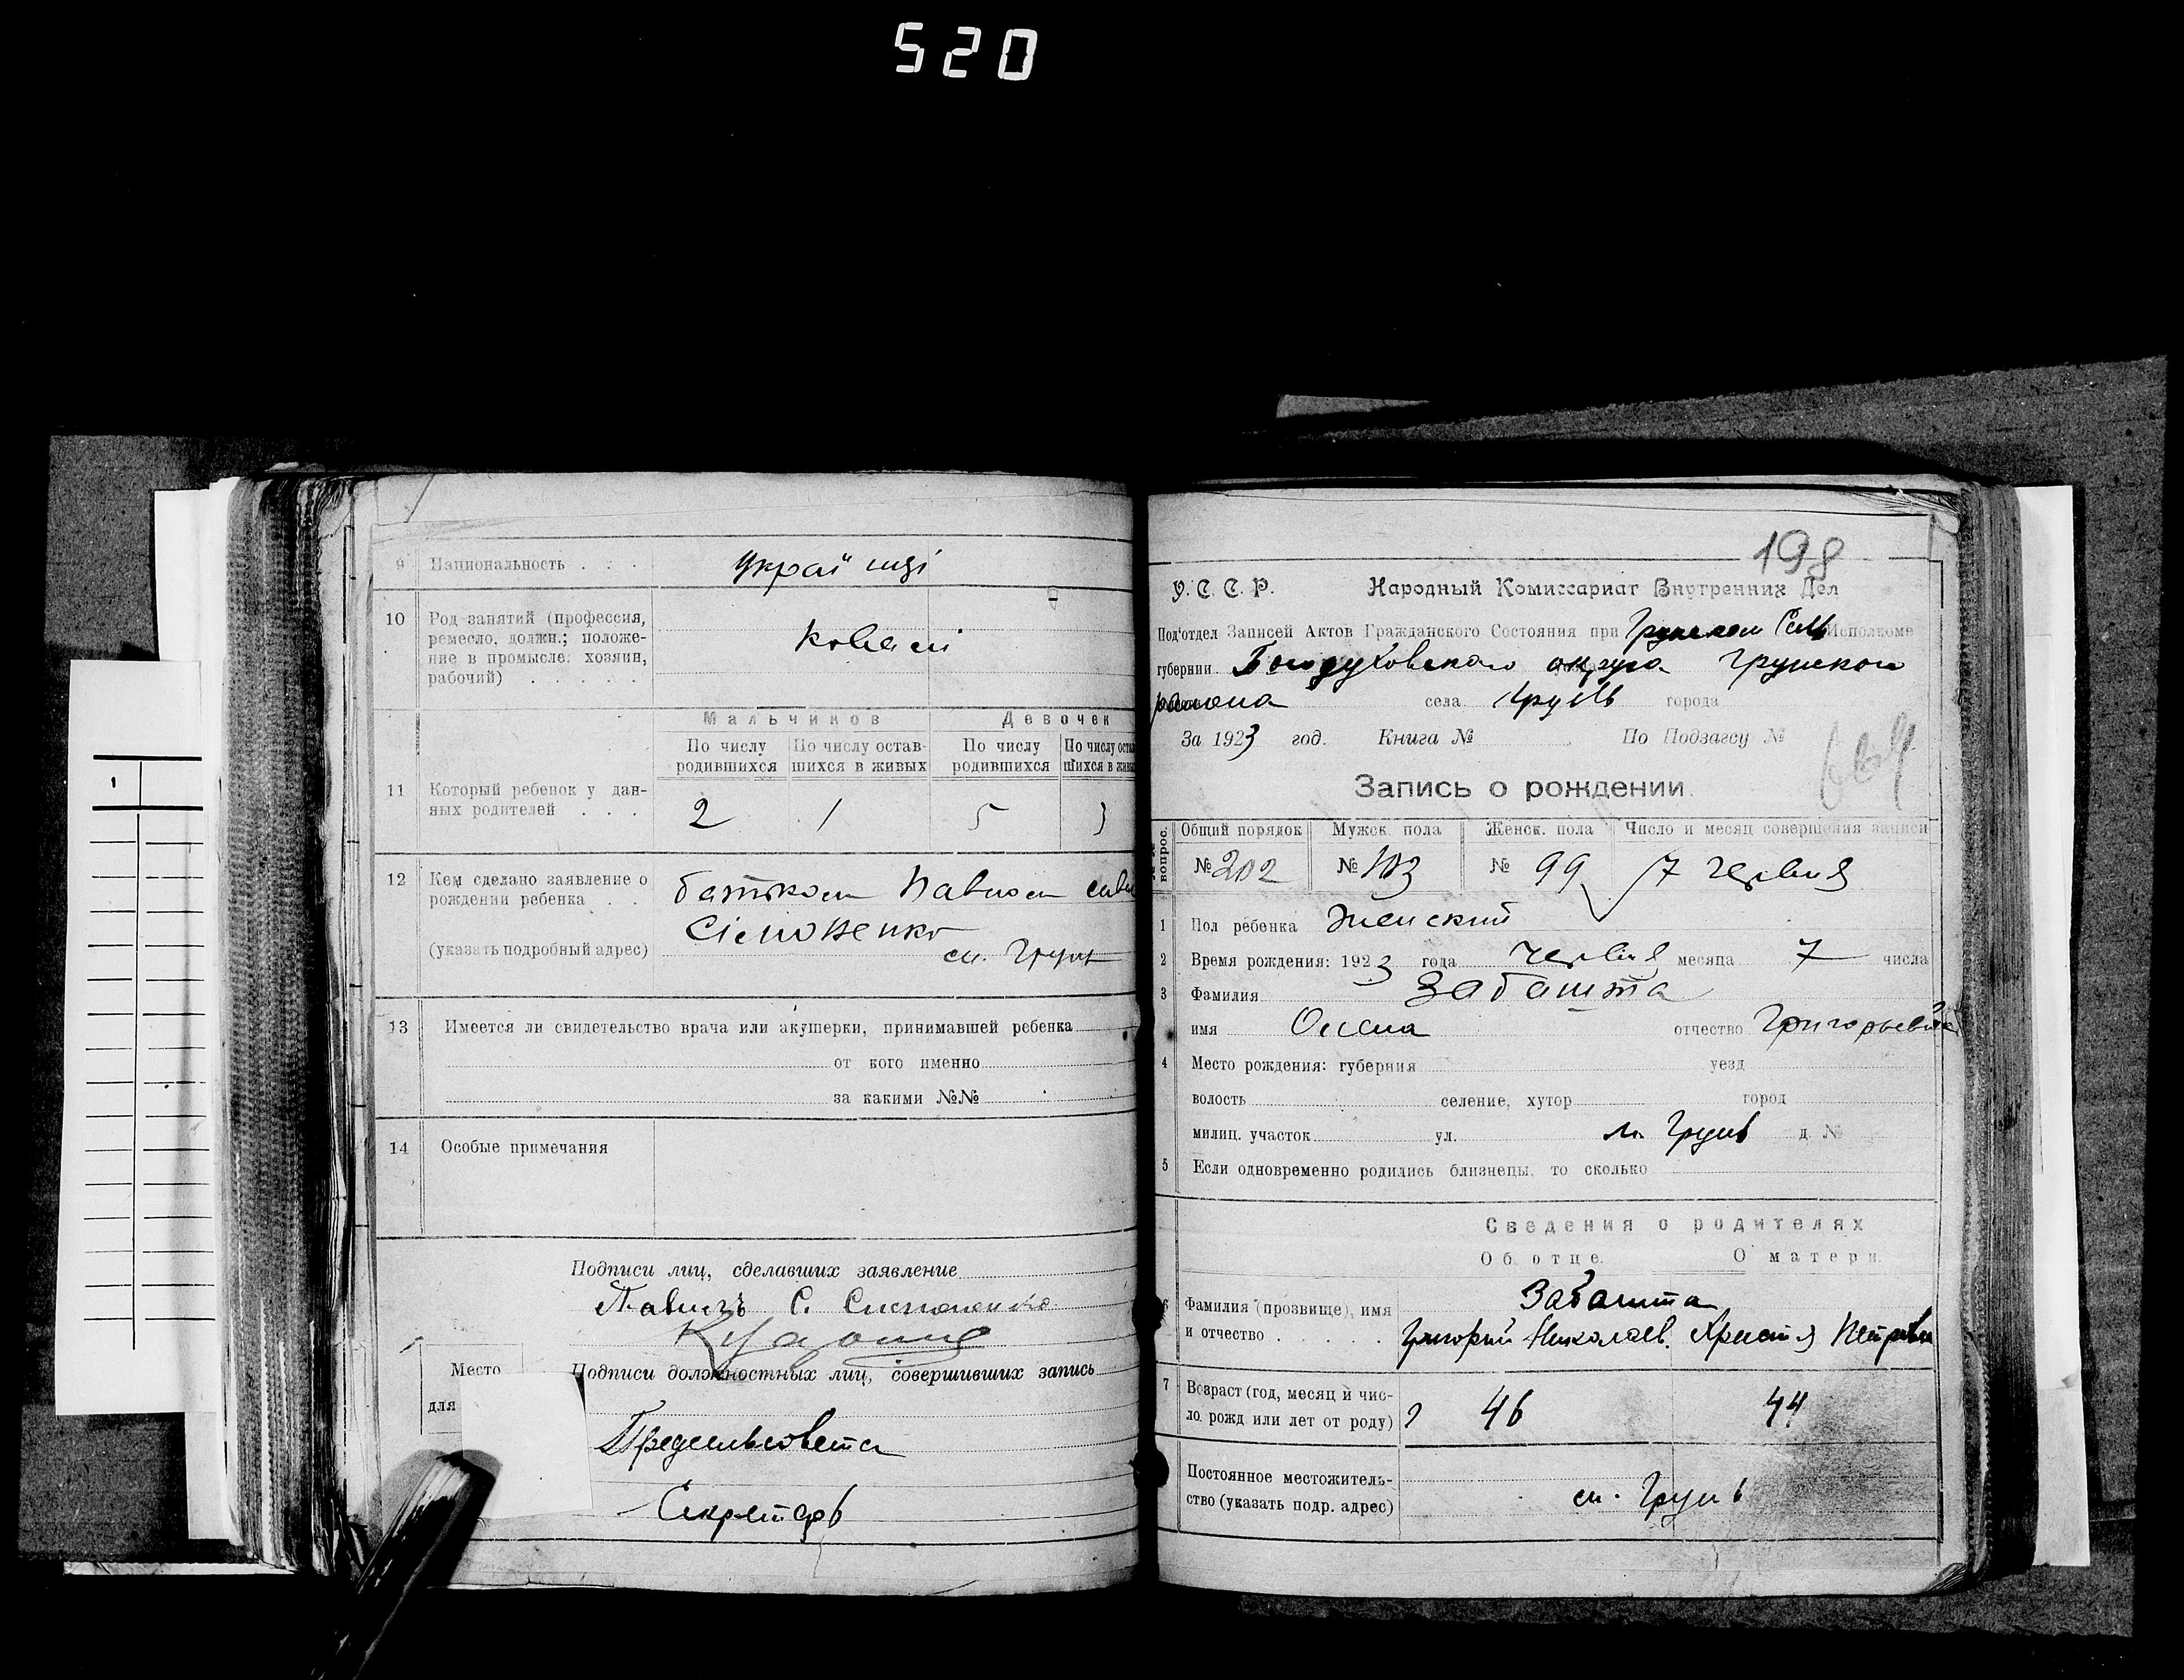 520
9 Национальность . . . Украïнці
10 Род занятий (профессия,
ремесло, должн.; положе-
ние в промысле: хозяин,
рабочий) . . . . .
Ковалі
Мальчиков Девочек
По числу родившихся По числу остав- шихся в живых По числу родившихся По числу остав шихся в живы
11 Который ребенок у дан-
ных родителей . . .
2 1 5 3
12 Кем сделано заявление о
рождении ребенка . .
(указать подробный адрес)
батьком Павлом
Сімоненко
см. Грунь
13 Имеется ли свидетельство врача или акушерки, принимавшей ребенка
от кого именно
за какими №№
14 Особые примечания
Подписи лиц, сделавших заявление
Павилъ С. Сисионенко
Место
для
Подписи должностных лиц, совершивших запись
Предсельсовета
Секретарь
1
198
У. С. С. Р. Народный Комиссариат Внутренних Дел
Под'отдел Записей Актов Гражданского Состояния при Грунском Сель Исполкоме
губернии Богодуховского округа Грунского
района села Грунь города
За 1923 год. Книга № По Подзагсу №
Запись о рождении.
вопрос. Общий порядок Мужск. пола Женск. пола Число и месяц совершения записи
№ 202 № 103 № 99 7 червня
1 Пол ребенка Женский
2 Время рождения: 1923 года червня месяца 7 числа
3 Фамилия Забашта
имя Олена отчество Григорьевна
4 Место рождения: губерния уезд
волость селение, хутор город
милиц. участок ул. м. Грунь д. №
5 Если одновременно родились близнецы, то сколько
Сведения о родителях
Об отце. О матери.
6 Фамилия (прозвище), имя
и отчество . . . . .
Забашта
Григорий Николаев. Христя Петровна
7 Возраст (год, месяц и чис-
ло рожд или лет от роду)
46 44
Постоянное местожитель-
ство (указать подр. адрес)
см. Грунь